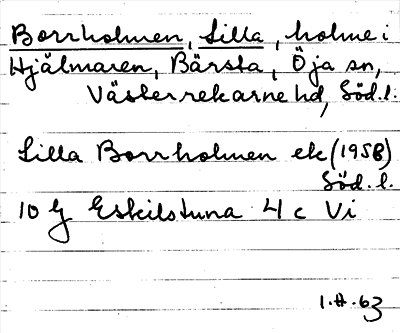 Borrholmen, Lilla, holme i
Hjälmaren, Bärsta, Öja sn,
Västerrekarne hd, Söd.l.
Lilla Borrholmen ek (1958)
Söd.l.
10 G Eskilstuna 4 c Vi
1.H.63